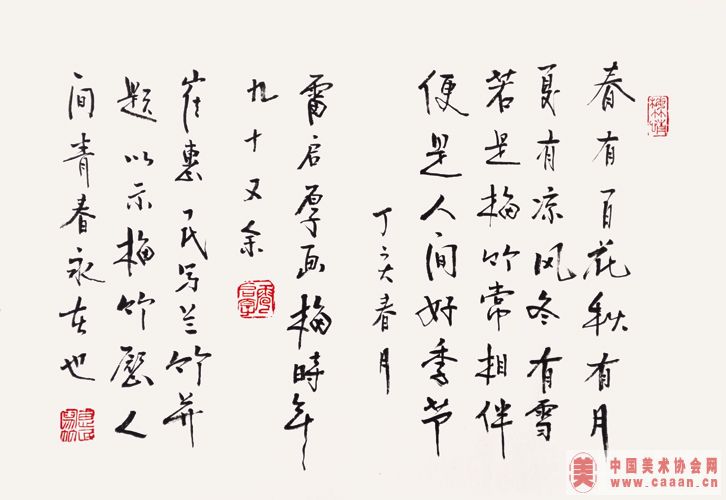 春有百花秋有月
夏有凉风冬有雪
若是梅竹常相伴
便是人间好季节
丁亥春月
雷启厚画梅時年
九十又余
崔惠民写兰竹并
题以示梅竹愿人
间青春永在也
美
中国美术协会网
www.caaan.cn